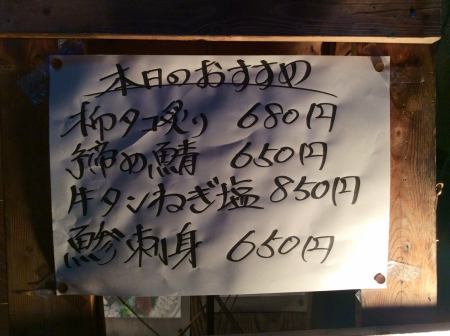 本日のおすすめ
柳タコ炙り 680円
締め鯖 650円
牛タンねぎ塩 850円
鯵刺身 650円